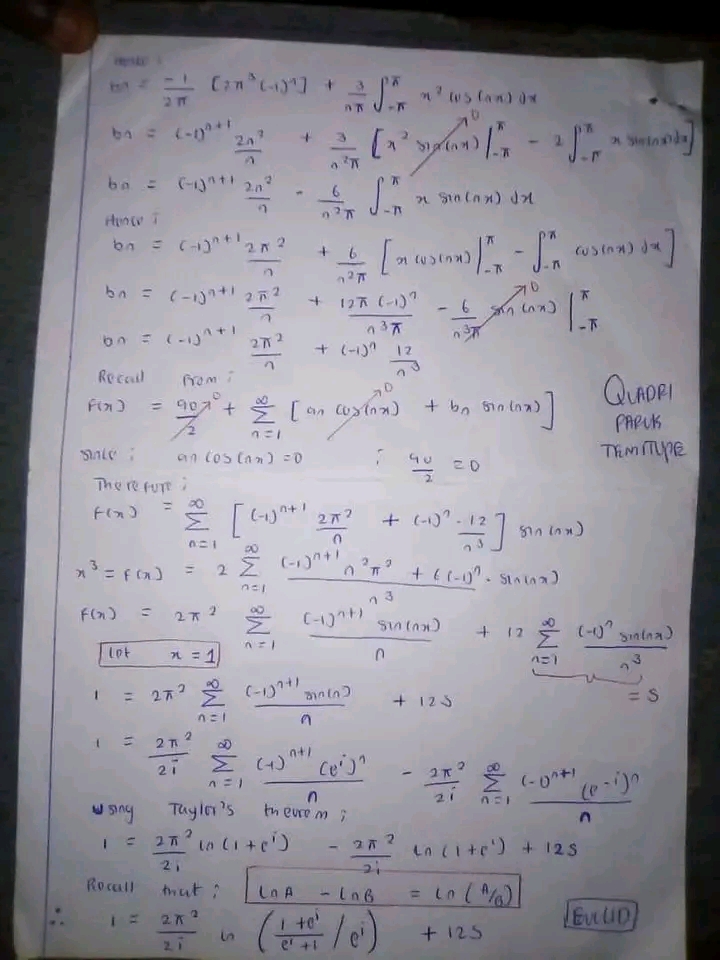 bn = -1/2π [2π³(-1)ⁿ] + 3/nπ ∫_{-π}^{π} x² cos(nx) dx
bn = (-1)ⁿ⁺¹ 2π²/n + 3/n²π [x² sin(nx)|_{-π}^{π} →0 - 2∫_{-π}^{π} x sin(nx)dx]
bn = (-1)ⁿ⁺¹ 2π²/n - 6/n²π ∫_{-π}^{π} x sin(nx) dx
Hence ;
bn = (-1)ⁿ⁺¹ 2π²/n + 6/n²π [x cos(nx)|_{-π}^{π} - ∫_{-π}^{π} cos(nx) dx]
bn = (-1)ⁿ⁺¹ 2π²/n + 12π(-1)ⁿ/n³π - 6/n³π sin(nx)|_{-π}^{π} →0
bn = (-1)ⁿ⁺¹ 2π²/n + (-1)ⁿ 12/n³
Recall from ;
F(x) = a0/2 →0 + Σ_{n=1}^{∞} [an cos(nx) →0 + bn sin(nx)]
QUADRI
FARUK
TEMITYPE
since ; an cos(nx) = 0 ; a0/2 = 0
Therefore ;
F(x) = Σ_{n=1}^{∞} [(-1)ⁿ⁺¹ 2π²/n + (-1)ⁿ · 12/n³] sin(nx)
x³ = F(x) = 2 Σ_{n=1}^{∞} (-1)ⁿ⁺¹ n²π² + 6(-1)ⁿ · sin(nx) / n³
F(x) = 2π² Σ_{n=1}^{∞} (-1)ⁿ⁺¹ sin(nx)/n + 12 Σ_{n=1}^{∞} (-1)ⁿ sin(nx)/n³
let x = 1
= S
1 = 2π² Σ_{n=1}^{∞} (-1)ⁿ⁺¹ sin(n)/n + 12S
1 = 2π²/2i Σ_{n=1}^{∞} (-1)ⁿ⁺¹ (eⁱ)ⁿ/n - 2π²/2i Σ_{n=1}^{∞} (-1)ⁿ⁺¹ (e⁻ⁱ)ⁿ/n
Using Taylor's theorem ;
1 = 2π²/2i ln(1+eⁱ) - 2π²/2i ln(1+eⁱ) + 12S
Recall that ; lnA - lnB = ln(A/B)
∴ 1 = 2π²/2i ln((1+eⁱ)/(eⁱ+1) / eⁱ) + 12S
EUCLID